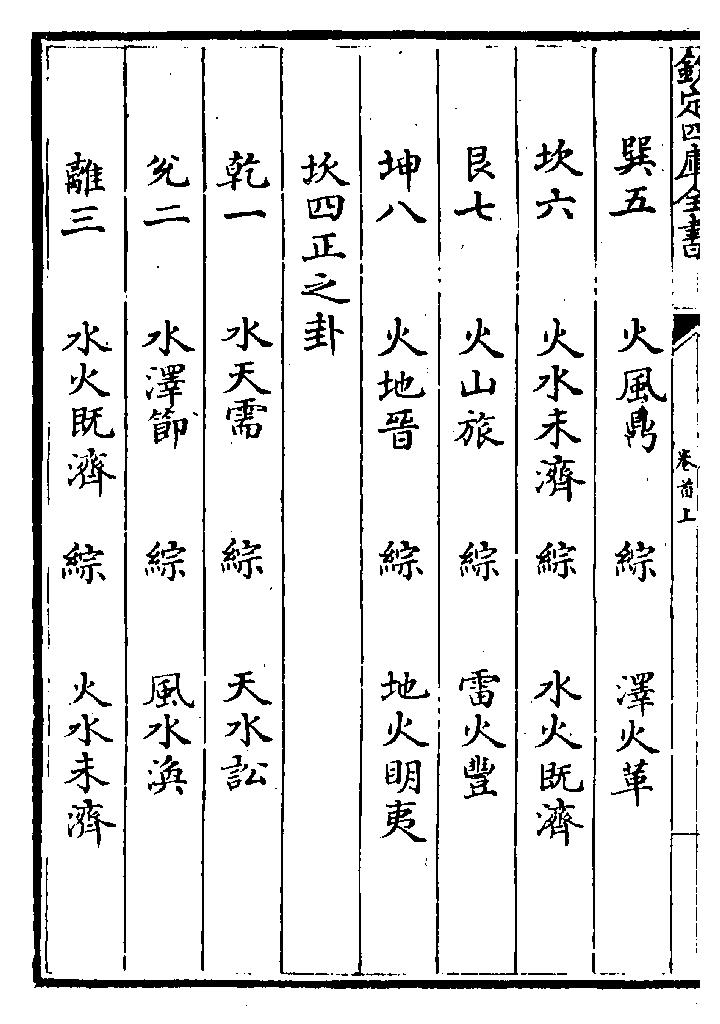 欽定四庫全書
卷首上
巽五 火風鼎 綜 澤火革
坎六 火水未濟 綜 水火既濟
艮七 火山旅 綜 雷火豐
坤八 火地晉 綜 地火明夷
坎四正之卦
乾一 水天需 綜 天水訟
兌二 水澤節 綜 風水渙
離三 水火既濟 綜 火水未濟